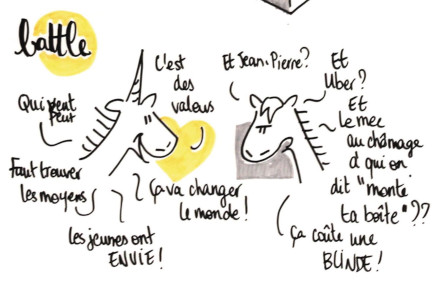 battle
C'est
des
valeurs
Qui veut
peut
Faut trouver
les moyens
Ça va changer
le monde !
les jeunes ont
ENVIE !
Et Jean-Pierre ?
Et
Uber ?
Et
le mec
au chômage
à qui on
dit "monte
ta boîte" ??
Ça coûte une
BLINDE !